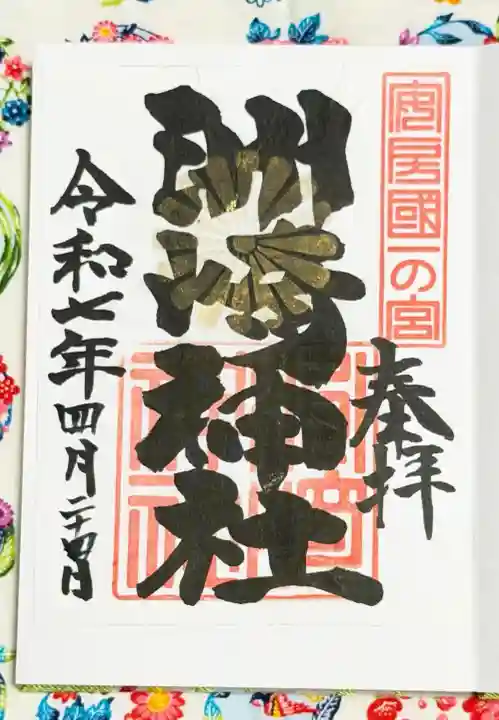 安房國一の宮
奉拝
洲崎神社
令和七年四月二十四日